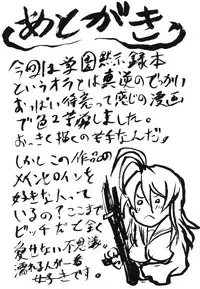 あとがき
今回は学園黙示録本
というオラとは真逆のでっかい
おっぱい待って感じの漫画
で色々苦労しました。
おっきく描くの苦手なんだ
しかしこの作品の
メインヒロインを
好きな人って
いるの?ここまで
ビッチだと全く
愛せない不思議。
濡れる人が一番
好きです。